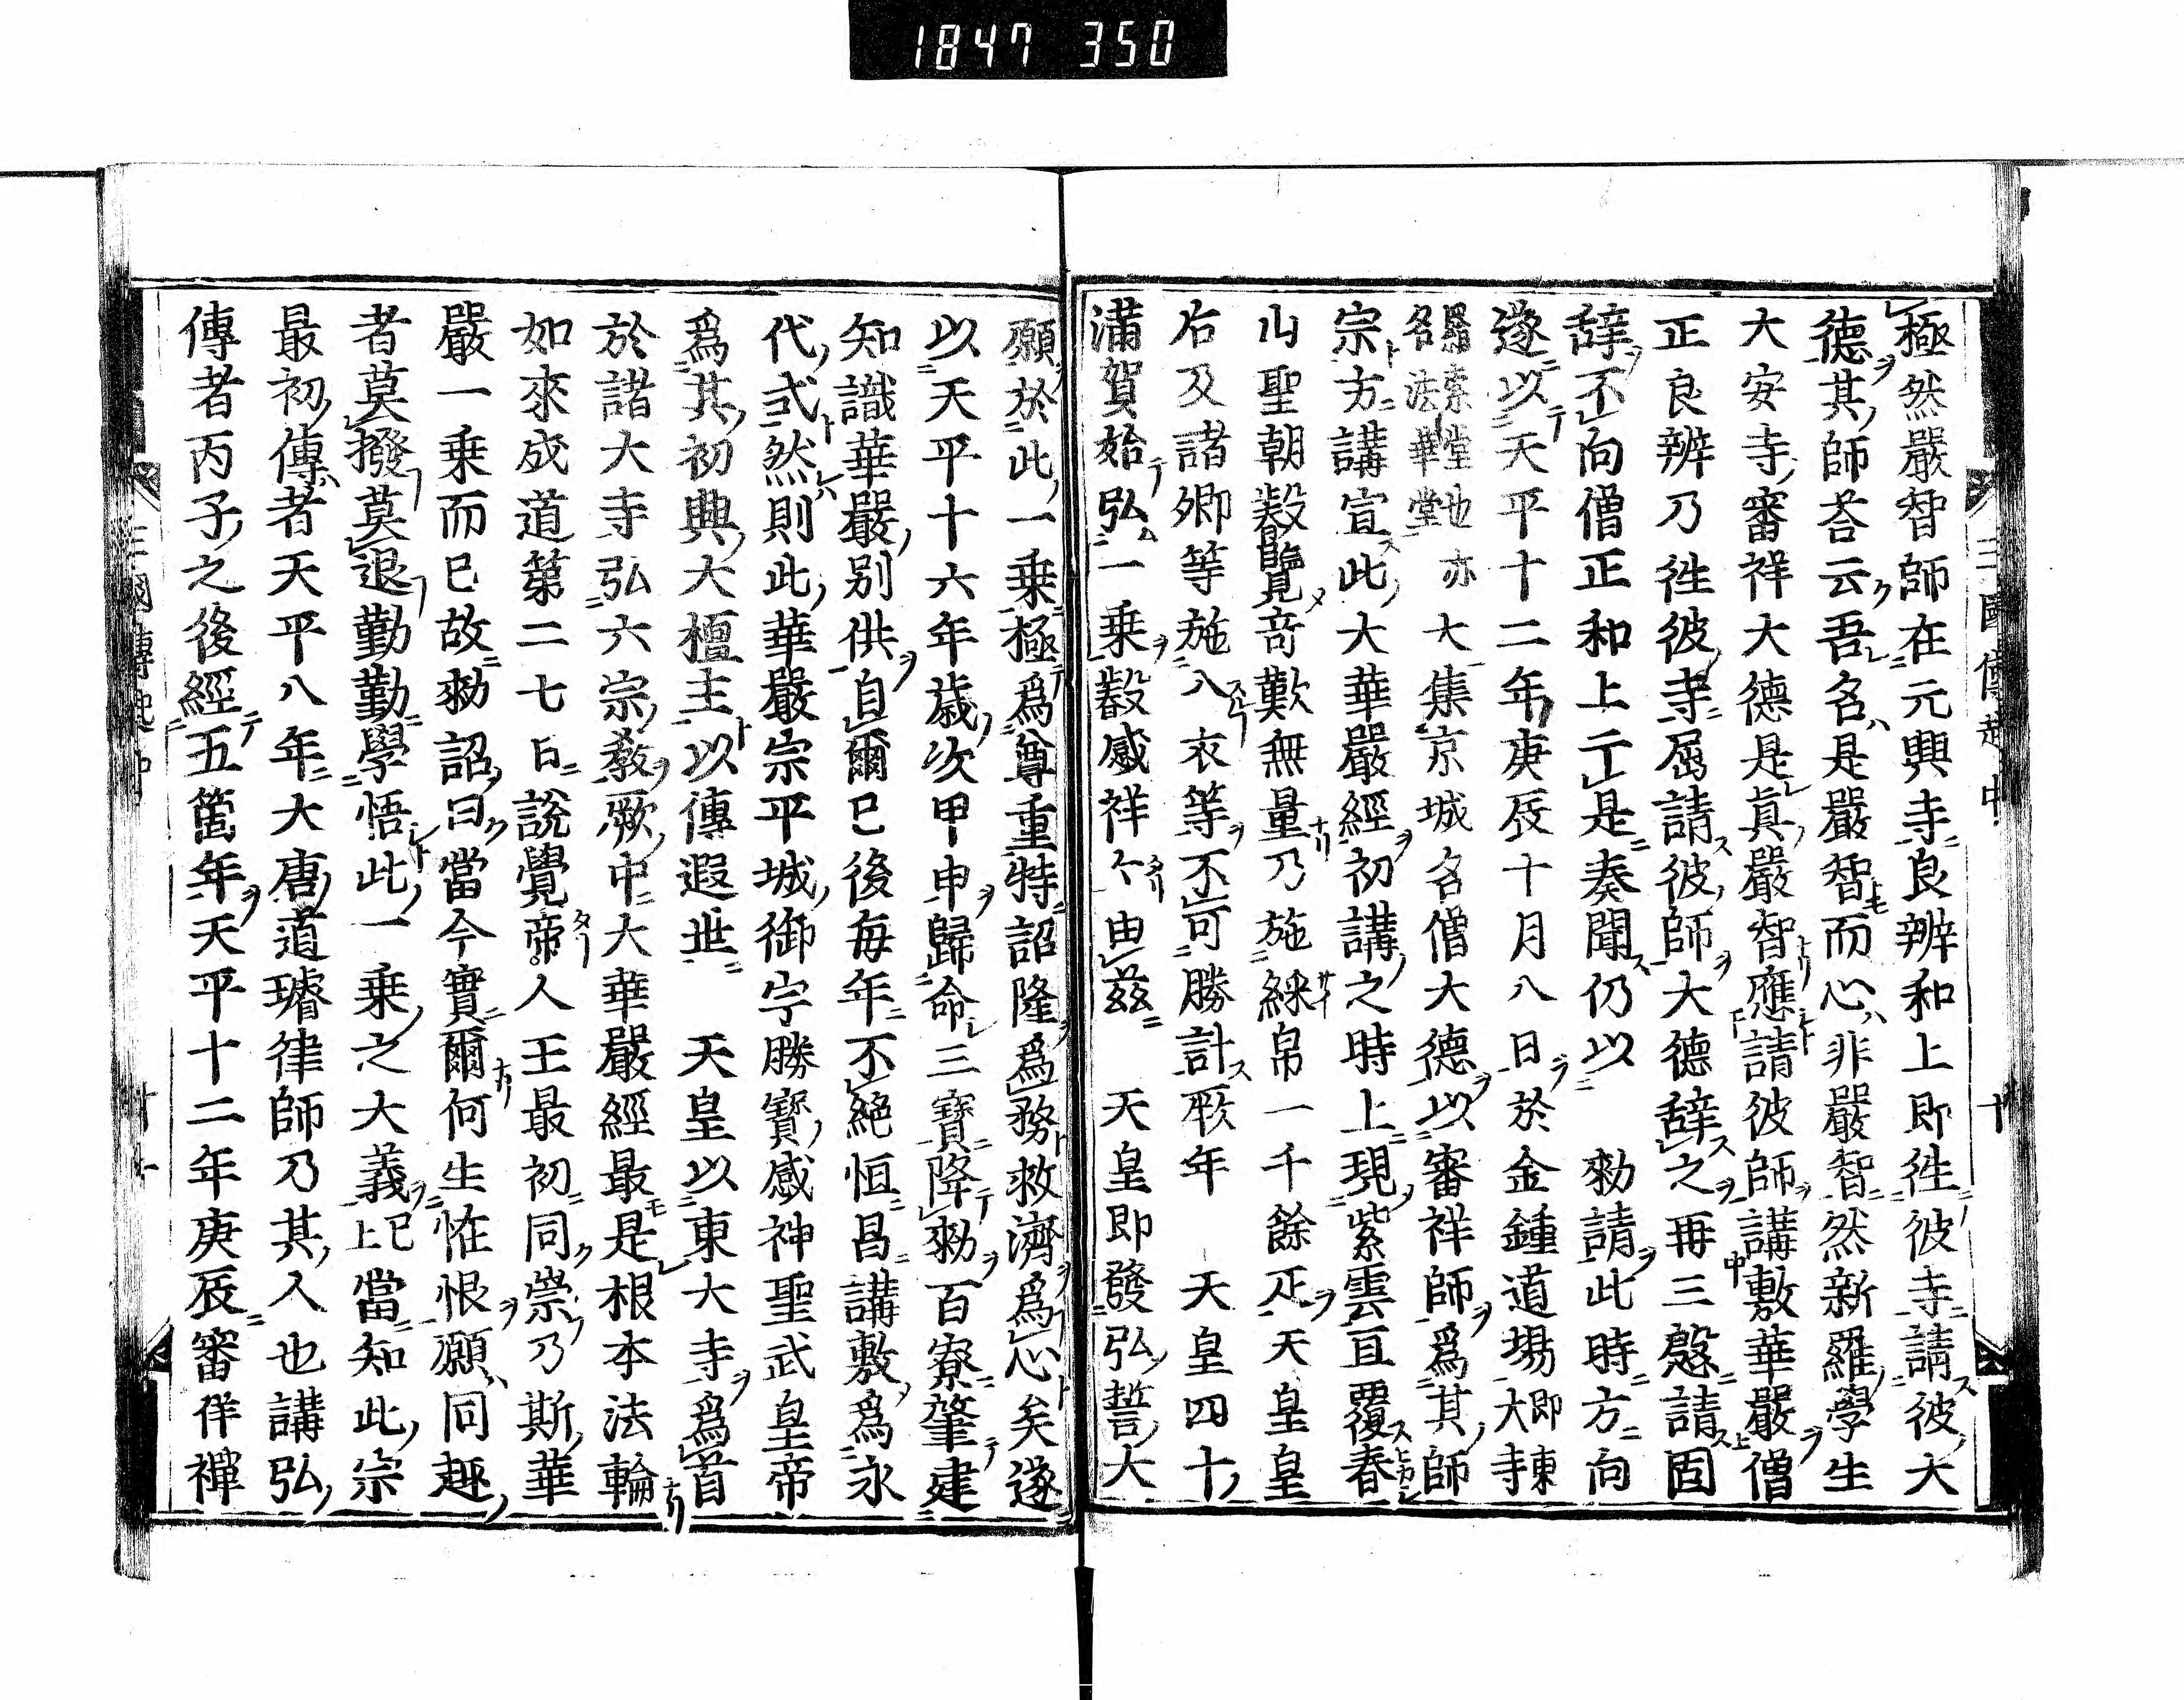 1847 350
極然嚴智師在元興寺良辨和上即徃彼寺請彼大
德其師荅云吾名是嚴智而心非嚴智然新羅學生
大安寺審祥大德是眞嚴智應請彼師講敷華嚴僧
正良辨乃徃彼寺屈請彼師大德辞之再三慇請固
辞不向僧正和上亍是奏聞仍以　勑請此時方向
遂以天平十二年庚辰十月八日於金鍾道場即東大寺
羂索堂也亦名法華堂大集京城名僧大德以審祥師爲其師
宗方講宣此大華嚴經初講之時上現紫雲亘覆春
山聖朝覽竒歎無量乃施綵帛一千餘疋天皇皇
右及諸卿等施八衣等不可勝計厥年　天皇四十
滿賀始弘一乗感祥由茲　天皇即發弘誓大
願於此一乗極爲尊重特詔隆爲務救濟爲心矣遂
以天平十六年歳次甲申歸命三寶降勑百寮肇建
知識華嚴別供自爾已後毎年不絶恒昌講敷爲永
代式然則此華嚴宗平城御宇勝寳感神聖武皇帝
爲其初興大檀主以傳遐丗　天皇以東大寺爲首
於諸大寺弘六宗敎厥中大華嚴經最是根本法輪
如來成道第二七日說覺帝人王最初同崇乃斯華
嚴一乗而已故勑詔曰當今實爾何生恠恨願同趣
者莫撥莫退勤勤學悟此一乗之大義已上當知此宗
最初傳者天平八年大唐道璿律師乃其人也講弘
傳者丙子之後經五箇年天平十二年庚辰審祥禪
三國傳起中
十